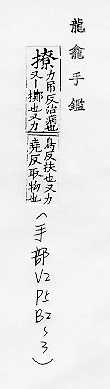 龍龕手鑑
撩
力吊反治也
又一擲也又力
鳥反扶也又力
堯反取物也
(手部V2P5B2~3)